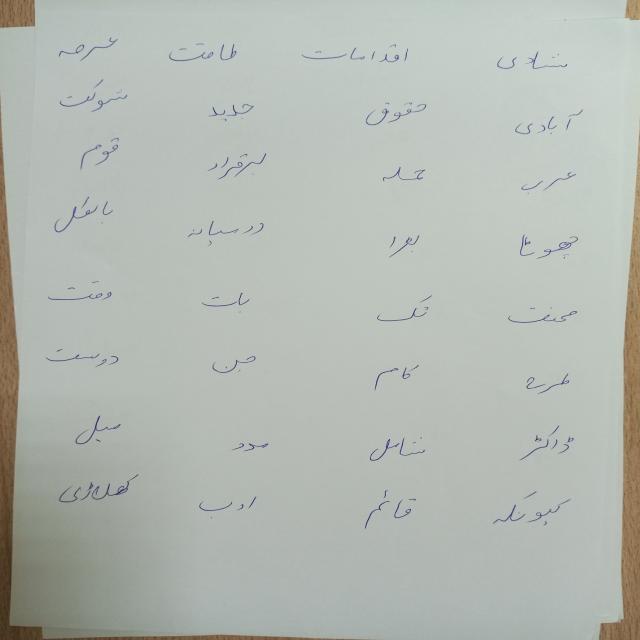 شادی اقدامات طاقت عرصہ
آبادی حقوق جدید شوکت
عرب حملہ برقرار قوم
چھوٹا بعرا درمیان بالکل
محنت تک بات وقت
طرح کام جن دوست
ڈاکٹر شامل مدد میل
کیونکہ قائم ادب کھلاڑی